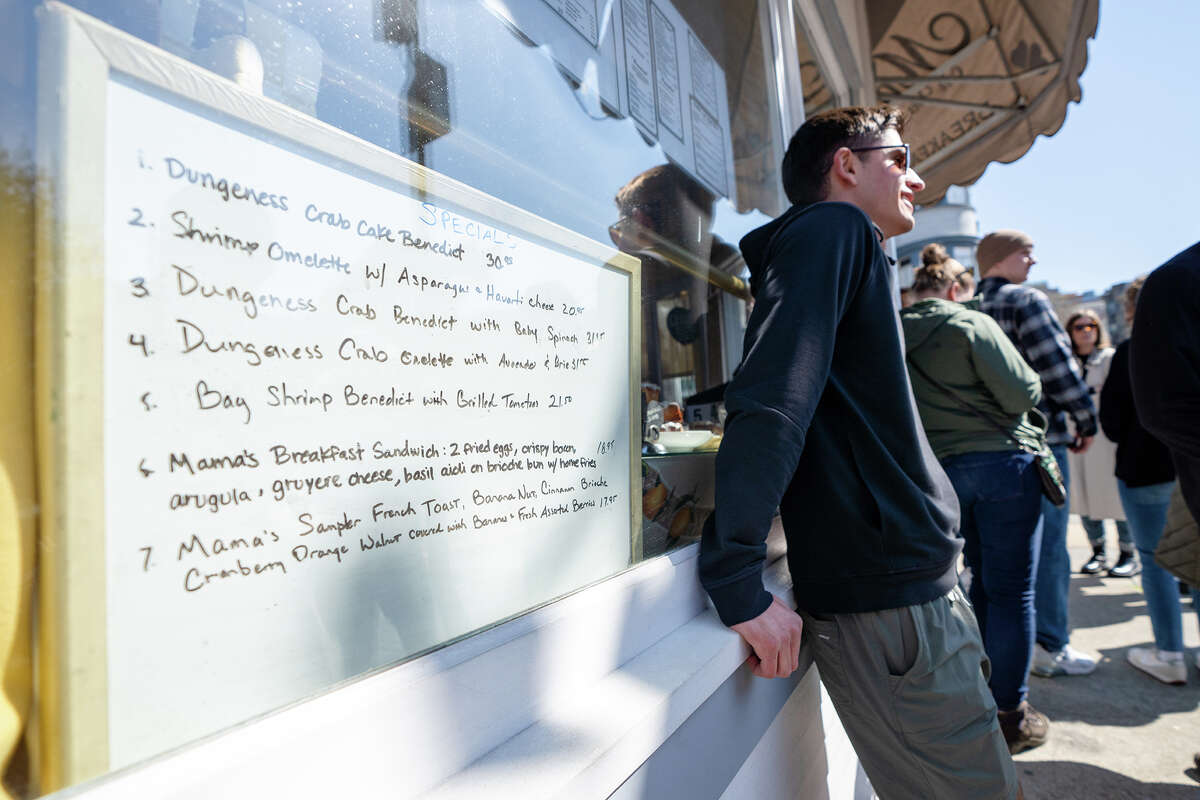 SPECIALS
1. Dungeness Crab Cake Benedict 30.95
2. Shrimp Omelette w/ Asparagus & Havarti cheese 20.95
3 Dungeness Crab Benedict with Baby Spinach 31.95
4. Dungeness Crab Omelette with Avocados & Brie 31.95
5. Bay Shrimp Benedict with Grilled Tomatoes 21.50
6 Mama's Breakfast Sandwich: 2 fried eggs, crispy bacon, 18.95
arugula, gruyere cheese, basil aioli on brioche bun w/ home fries
7. Mama's Sampler French Toast, Banana Nut, Cinnamon Brioche
Cranberry Orange Walnut covered with Bananas & Fresh Assorted Berries 17.95
BREAKF
5